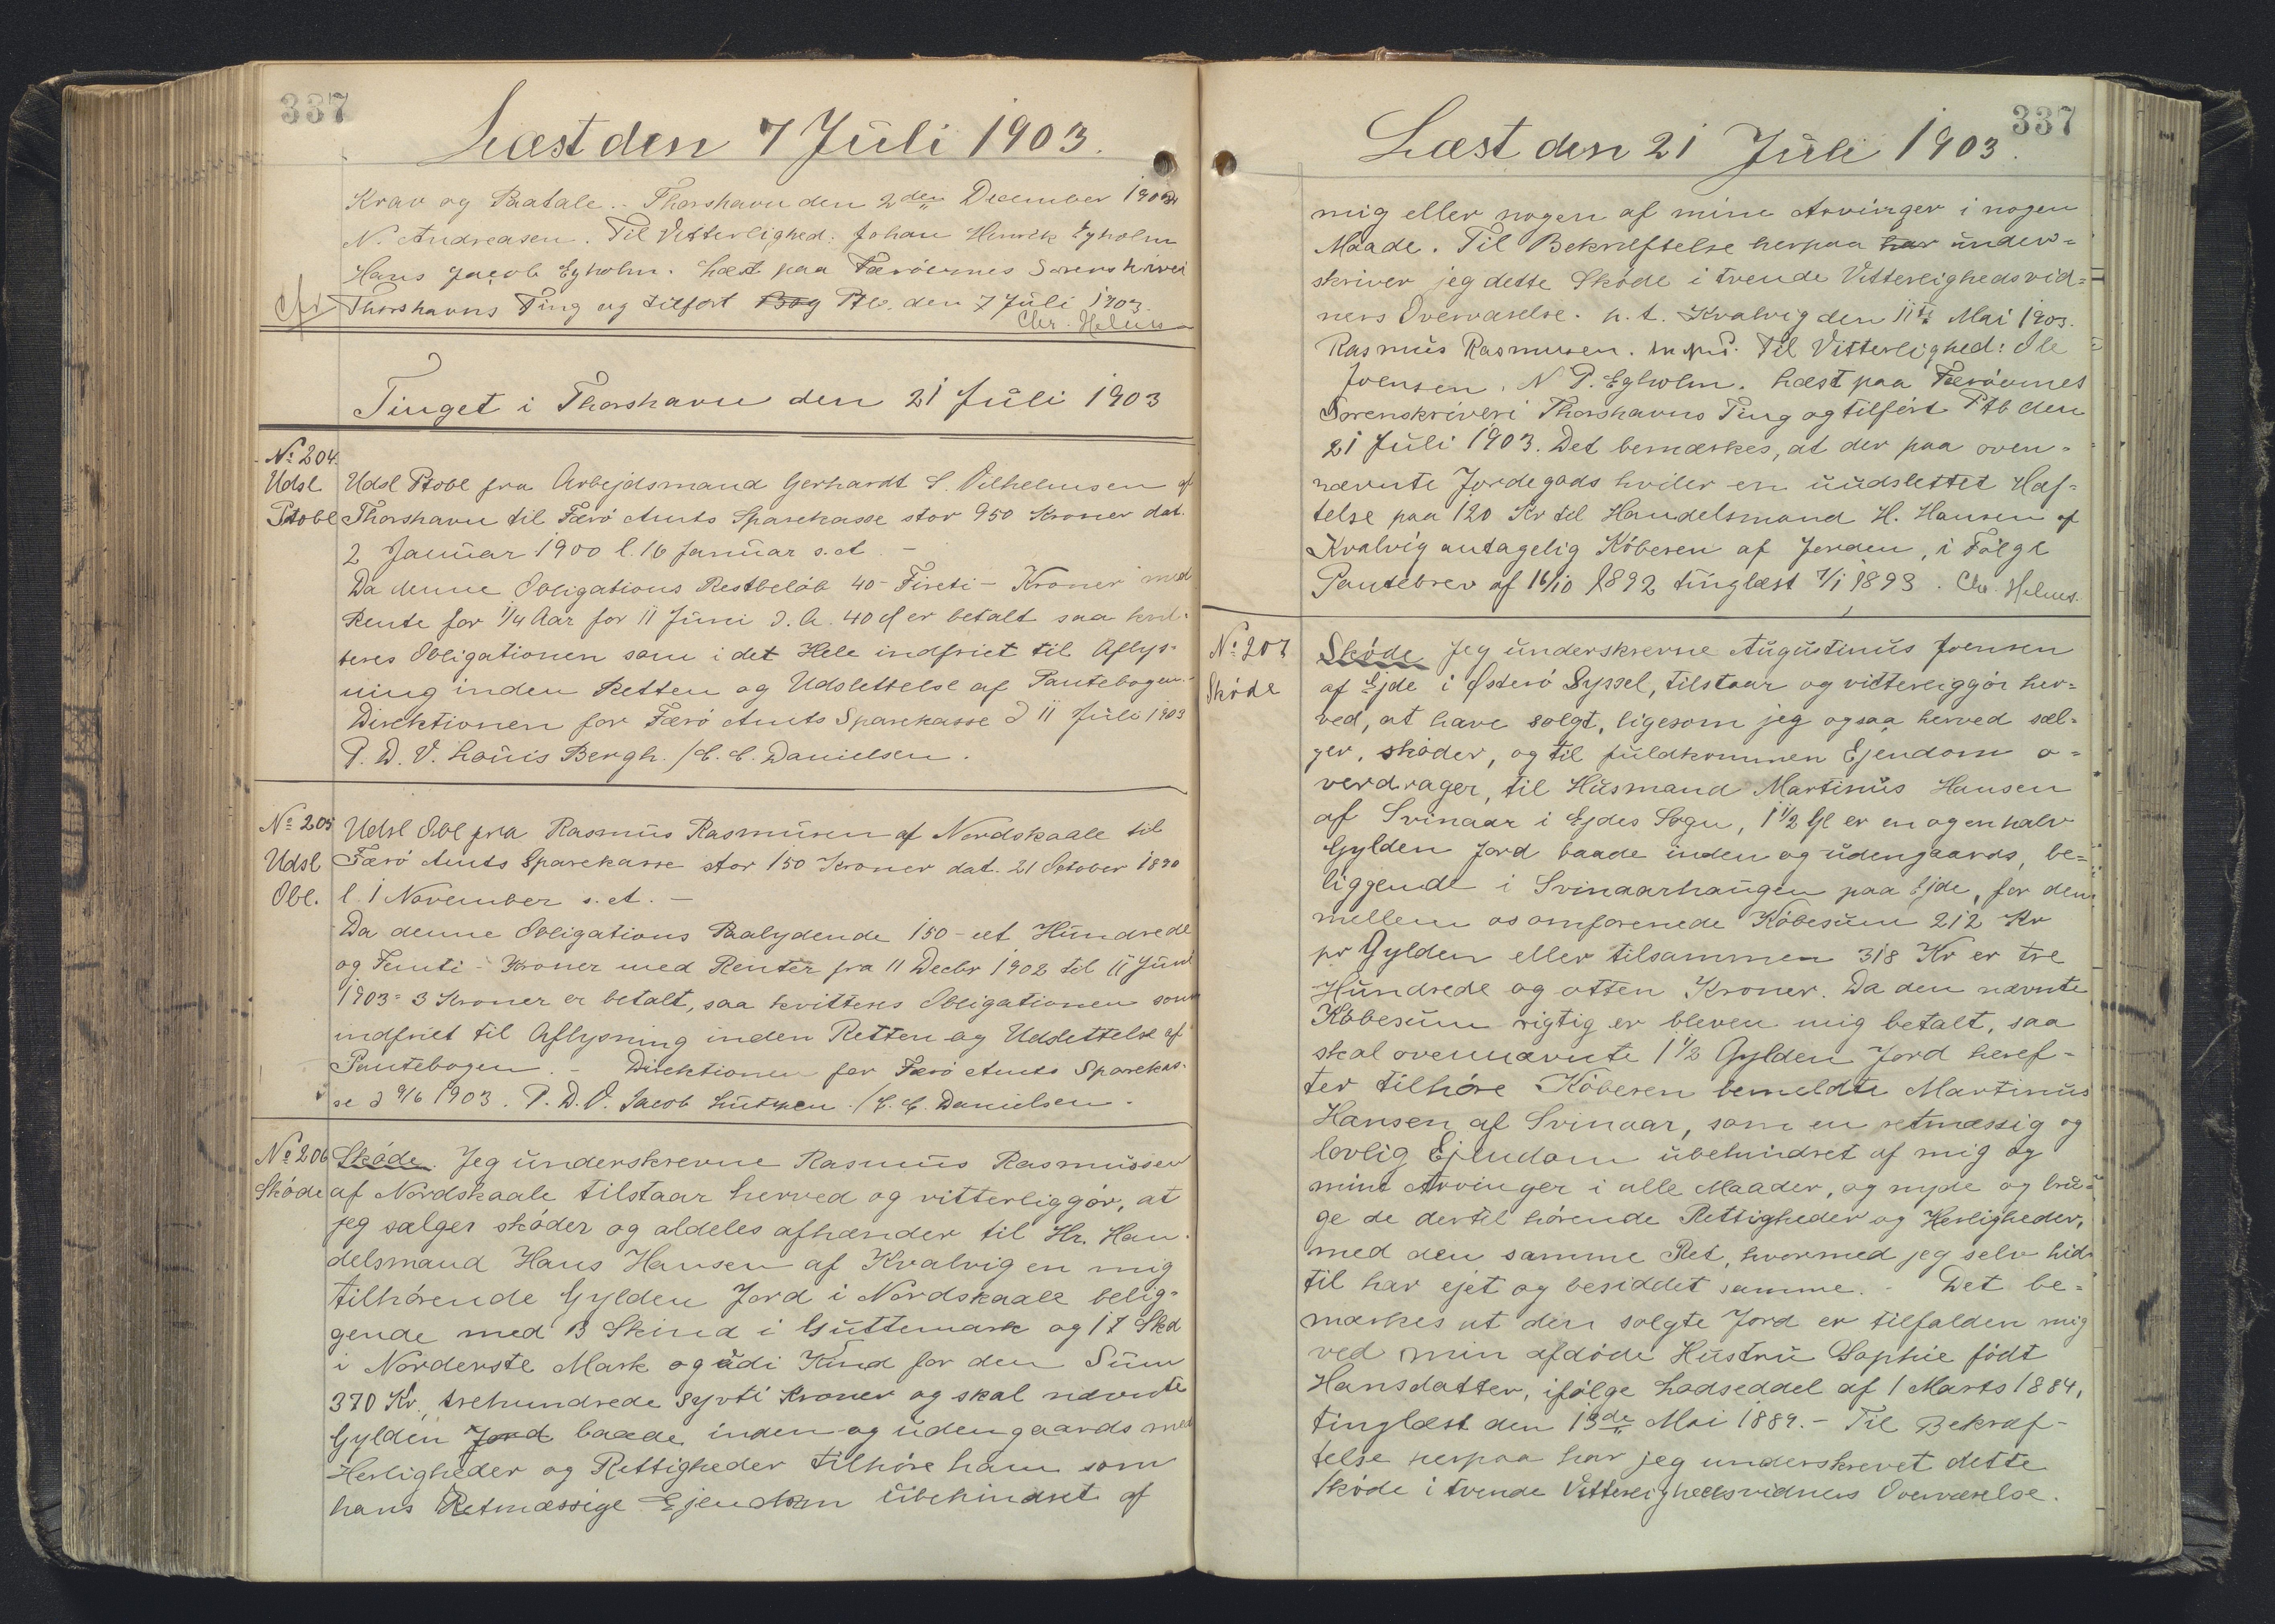 337
Læst den 7 Juli 1903.
Krav og Paatale. - Thorshavn den 2den December 1902
N. Andreasen. Til Vitterlighed: Johan Hinrik Egholm
Hans Jacob Egholm. Læst paa Færöernes Sorenskriveri
Thorshavns Ting og tilfört Bog Ptb. den 7 Juli 1903.
Chr. Helms
Tinget i Thorshavn den 21 Juli 1903
No 204.
Udsl
Ptobl
Udsl Ptobl fra Arbejdsmand Gerhardt S. Vilhelmsen af
Thorshavn til Færö Amts Sparekasse stor 950 Kroner dat.
2 Januar 1900 l. 16 Januar s.A. -
Da denne Obligations Restbelöb 40 - Fireti - Kroner med
Rente for 1/4 Aar for 11 Juni d. A. 40 Ø er betalt saa kvit-
teres Obligationen som i det Hele indfriet til Aflys-
ning inden Retten og Udslettelse af Pantebogen. -
Direktionen for Færö Amts Sparekasse d 11 Juli 1903
P. D. V. Louis Bergh. / C. C. Danielsen.
No 205
Udsl
Obl.
Udsl Obl fra Rasmus Rasmusen af Nordskaale til
Færö Amts Sparekasse stor 150 Kroner dat. 21 October 1890
l. 1 November s. A. -
Da denne Obligations Paalydende 150 - et Hundrede
og Femti - Kroner med Renter fra 11 Decbr 1902 til 11 Juni
1903 = 3 Kroner er betalt, saa kvitteres Obligationen som
indfriet til Aflysning inden Retten og Udslettelse af
Pantebogen. - Direktionen for Færö Amts Sparekas-
se d 9/6 1903. P. D. V. Jacob Lützen. / C. C. Danielsen.
No 206
Sköde
Sköde. Jeg underskrevne Rasmus Rasmussen
af Nordskaale tilstaar herved og vitterliggör, at
jeg sælger sköder og aldeles afhænder til Hr. Han-
delsmand Hans Hansen af Kvalvig en mig
tilhörende Gylden Jord i Nordskaale belig-
gende med 13 Skind i Guttemark og 17 Skd
i Norderste Mark og udi Kund for den Sum
370 Kr., trehundrede syvti Kroner og skal nævnte
Gylden Jord baade inden og udengaards med
Herligheder og Rettigheder tilhöre ham som
hans Retmæssige Ejendom ubehindret af
337
Læst den 21 Juli 1903.
mig eller nogen af mine Arvinger i nogen
Maade. Til Bekræftelse herpaa har under-
skriver jeg dette Sköde i tvende Vitterlighedsvid-
ners Overværelse. p. t. Kvalvig den 11te Mai 1903.
Rasmus Rasmusen. m. p. P. Til Vitterlighed: Ole
Joensen. N P. Egholm. Læst paa Færöernes
Sorenskriveri Thorshavns Ting og tilfört Ptb den
21 Juli 1903. Det bemærkes, at der paa oven-
nævnte Jordegods hviler en uudslettet Hæf-
telse paa 120 Kr til Handelsmand H. Hansen af
Kvalvig antagelig Köberen af Jorden, i Fölge
Pantebrev af 16/10 1892 tinglæst 7/1 1893. Chr. Helms.
No 207
Sköde
Sköde Jeg underskrevne Augustinus Joensen
af Ejde i Østerö Syssel, tilstaar og vitterliggör her-
ved, at have solgt, ligesom jeg ogsaa herved sæl-
ger, sköder, og til fuldkommen Ejendom o-
verdrager, til Husmand Martinus Hansen
af Svinaar i Ejdes Sogn, 1 1/2 Gl er en og en halv
Gylden Jord baade inden og udengaards, be-
liggende i Svinaarhaugen paa Ejde, for den
mellem os omforenede Köbesum 212 Kr
pr Gylden eller tilsammen 318 Kr er tre
Hundrede og atten Kroner. Da den nævnte
Köbesum rigtig er bleven mig betalt, saa
skal ovennævnte 1 1/2 Gylden Jord heref-
ter tilhöre Köberen bemeldte Martinus
Hansen af Svinaar, som en retmæssig og
lovlig Ejendom ubehindret af mig og
mine Arvinger i alle Maader, og nyde og bru-
ge de dertil hörende Rettigheder og Herligheder,
med den samme Ret, hvormed jeg selv hid-
til har ejet og besiddet samme. - Det be-
mærkes at den solgte Jord er tilfalden mig
ved min afdöde Hustru Sophie födt
Hansdatter, ifölge Lodseddel af 1 Marts 1884,
tinglæst den 13de Mai 1889. - Til Bekræf-
telse herpaa har jeg underskrevet dette
Sköde i tvende Vitterlighedsvidners Overværelse.